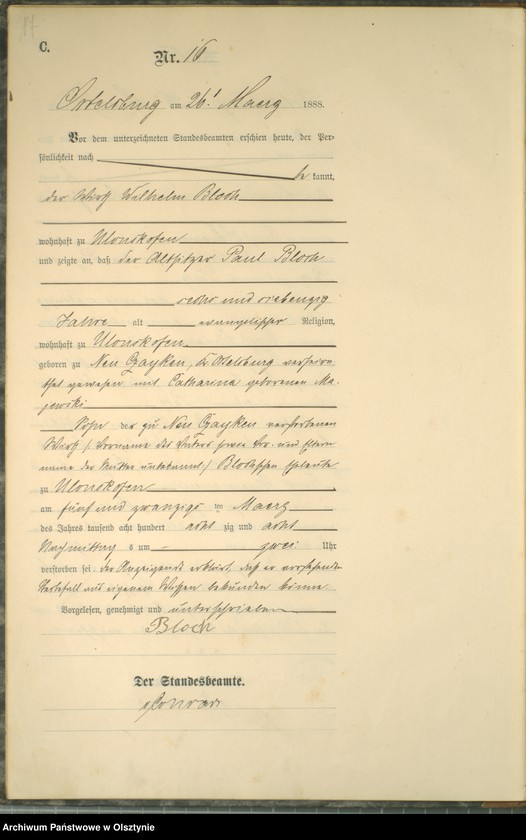 C.
Nr. 16
Ortelsburg am 26. Maerz 1888.
Vor dem unterzeichneten Standesbeamten erschien heute, der Per-
sönlichkeit nach
be kannt,
der Wirth Wilhelm Bloch
wohnhaft zu Ulonskofen
und zeigte an, daß der Altsitzer Paul Bloch
sechs und siebenzig
Jahre alt evangelischer Religion,
wohnhaft zu Ulonskofen
geboren zu Neu Czayken, Kr Ortelsburg verheira
thet gewesen mit Catharina geborenen Ma-
jewski
Sohn der zu Neu Czayken verstorbenen
Wirth / Vorname des Vaters sowie Vor- und Eltern
name der Mutter unbekannt / Blochschen Eheleute
zu Ulonskofen
am fünf und zwanzigs ten Maerz
des Jahres tausend acht hundert acht zig und acht
Nachmittag s um zwei Uhr
verstorben sei, der Anzeigende erklärt, daß er vorstehenden
Sterbefall aus eigenem Wissen bekunden könne.
Vorgelesen, genehmigt und unterschrieben
Bloch
Der Standesbeamte.
Archiwum Państwowe w Olsztynie